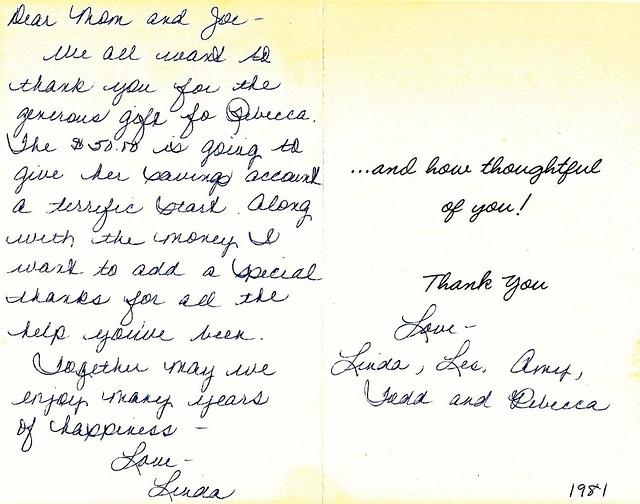 Dear Mom and Joe -
We all want to
thank you for the
generous gift fo Rebecca.
The $50.00 is going to
give her savings account
a terrific start. Along
with the money I
want to add a special
thanks for all the
help you've been.
Together may we
enjoy many years
of happiness -
Love -
Linda
...and how thoughtful
of you!
Thank You
Love -
Linda, Les, Amy,
Todd and Rebecca
1981